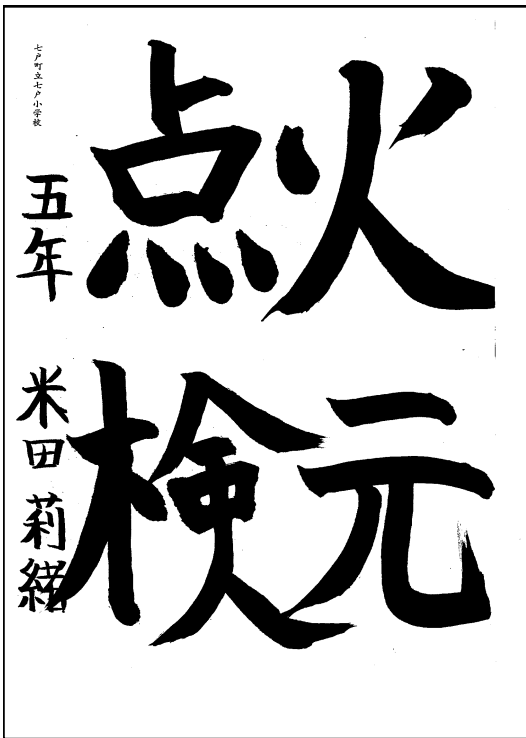 火元
点検
五年 米田莉緒
七戸町立七戸小学校